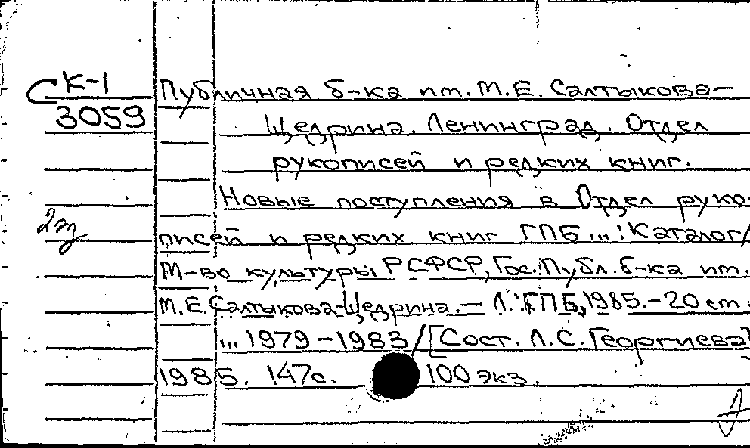 С К-1
3059
2 эз
Публичная б-ка им. М.Е. Салтыкова-
Щедрина. Ленинград. Отдел
рукописей и редких книг.
Новые поступления в Отдел руко-
писей и редких книг ГПБ...: Каталог/
М-во культуры РСФСР, Гос. Публ. б-ка им.
М.Е. Салтыкова-Щедрина. – Л.: ГПБ, 1985. – 20 см.
... 1979 – 1983 / [Сост. Л.С. Георгиева]
1985. 147с. 100 экз.